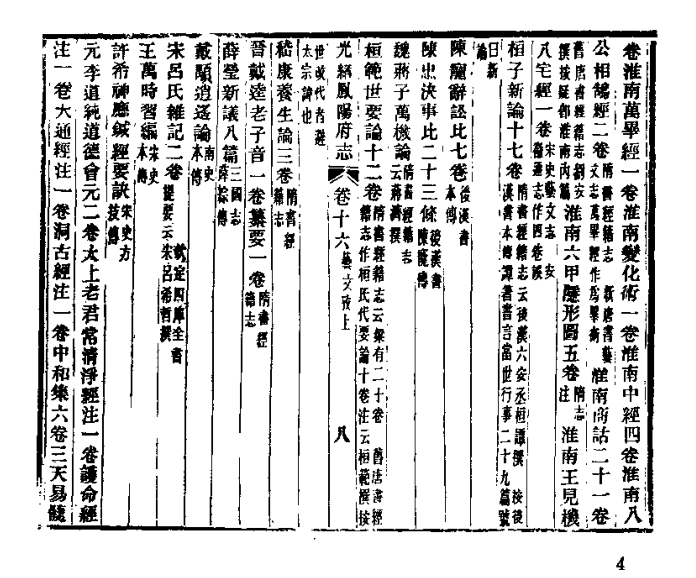 卷淮南萬畢經一卷淮南變化術一卷淮南中經四卷淮南八
公相鵠經二卷隋書經籍志 新唐書藝文志萬畢經作萬畢術淮南萬話二十一卷
舊唐書經籍志劉安撰按疑卽淮南內篇淮南六甲隱形圖五卷隋志注淮南王見機
八宅經一卷宋史藝文志 安徽通志作四卷誤
桓子新論十七卷隋書經籍志云後漢六安丞桓譚撰 按後漢書本傳譚著書言當世行事二十九篇號
曰新論
陳寵辭訟比七卷後漢書本傳
陳忠決事比二十三條後漢書陳寵傳
魏蔣子萬機論隋書經籍志云蔣濟撰
桓範世要論十二卷隋書經籍志云梁有二十卷 舊唐書經籍志作桓氏代要論十卷注云桓範撰按
光緒鳳陽府志 卷十六 藝文攷上 八
世改代者避太宗諱也
嵇康養生論三卷隋書經籍志
晉戴逵老子音一卷纂要一卷隋書經籍志
薛瑩新議八篇三國志薛綜傳
戴顒逍遙論南史本傳
宋呂氏雜記二卷欽定四庫全書提要云宋呂希哲撰
王萬時習編宋史本傳
許希神應鍼經要訣宋史方技傳
元李道純道德會元二卷太上老君常清淨經注一卷護命經
注一卷大通經注一卷洞古經注一卷中和集六卷三天易髓
4